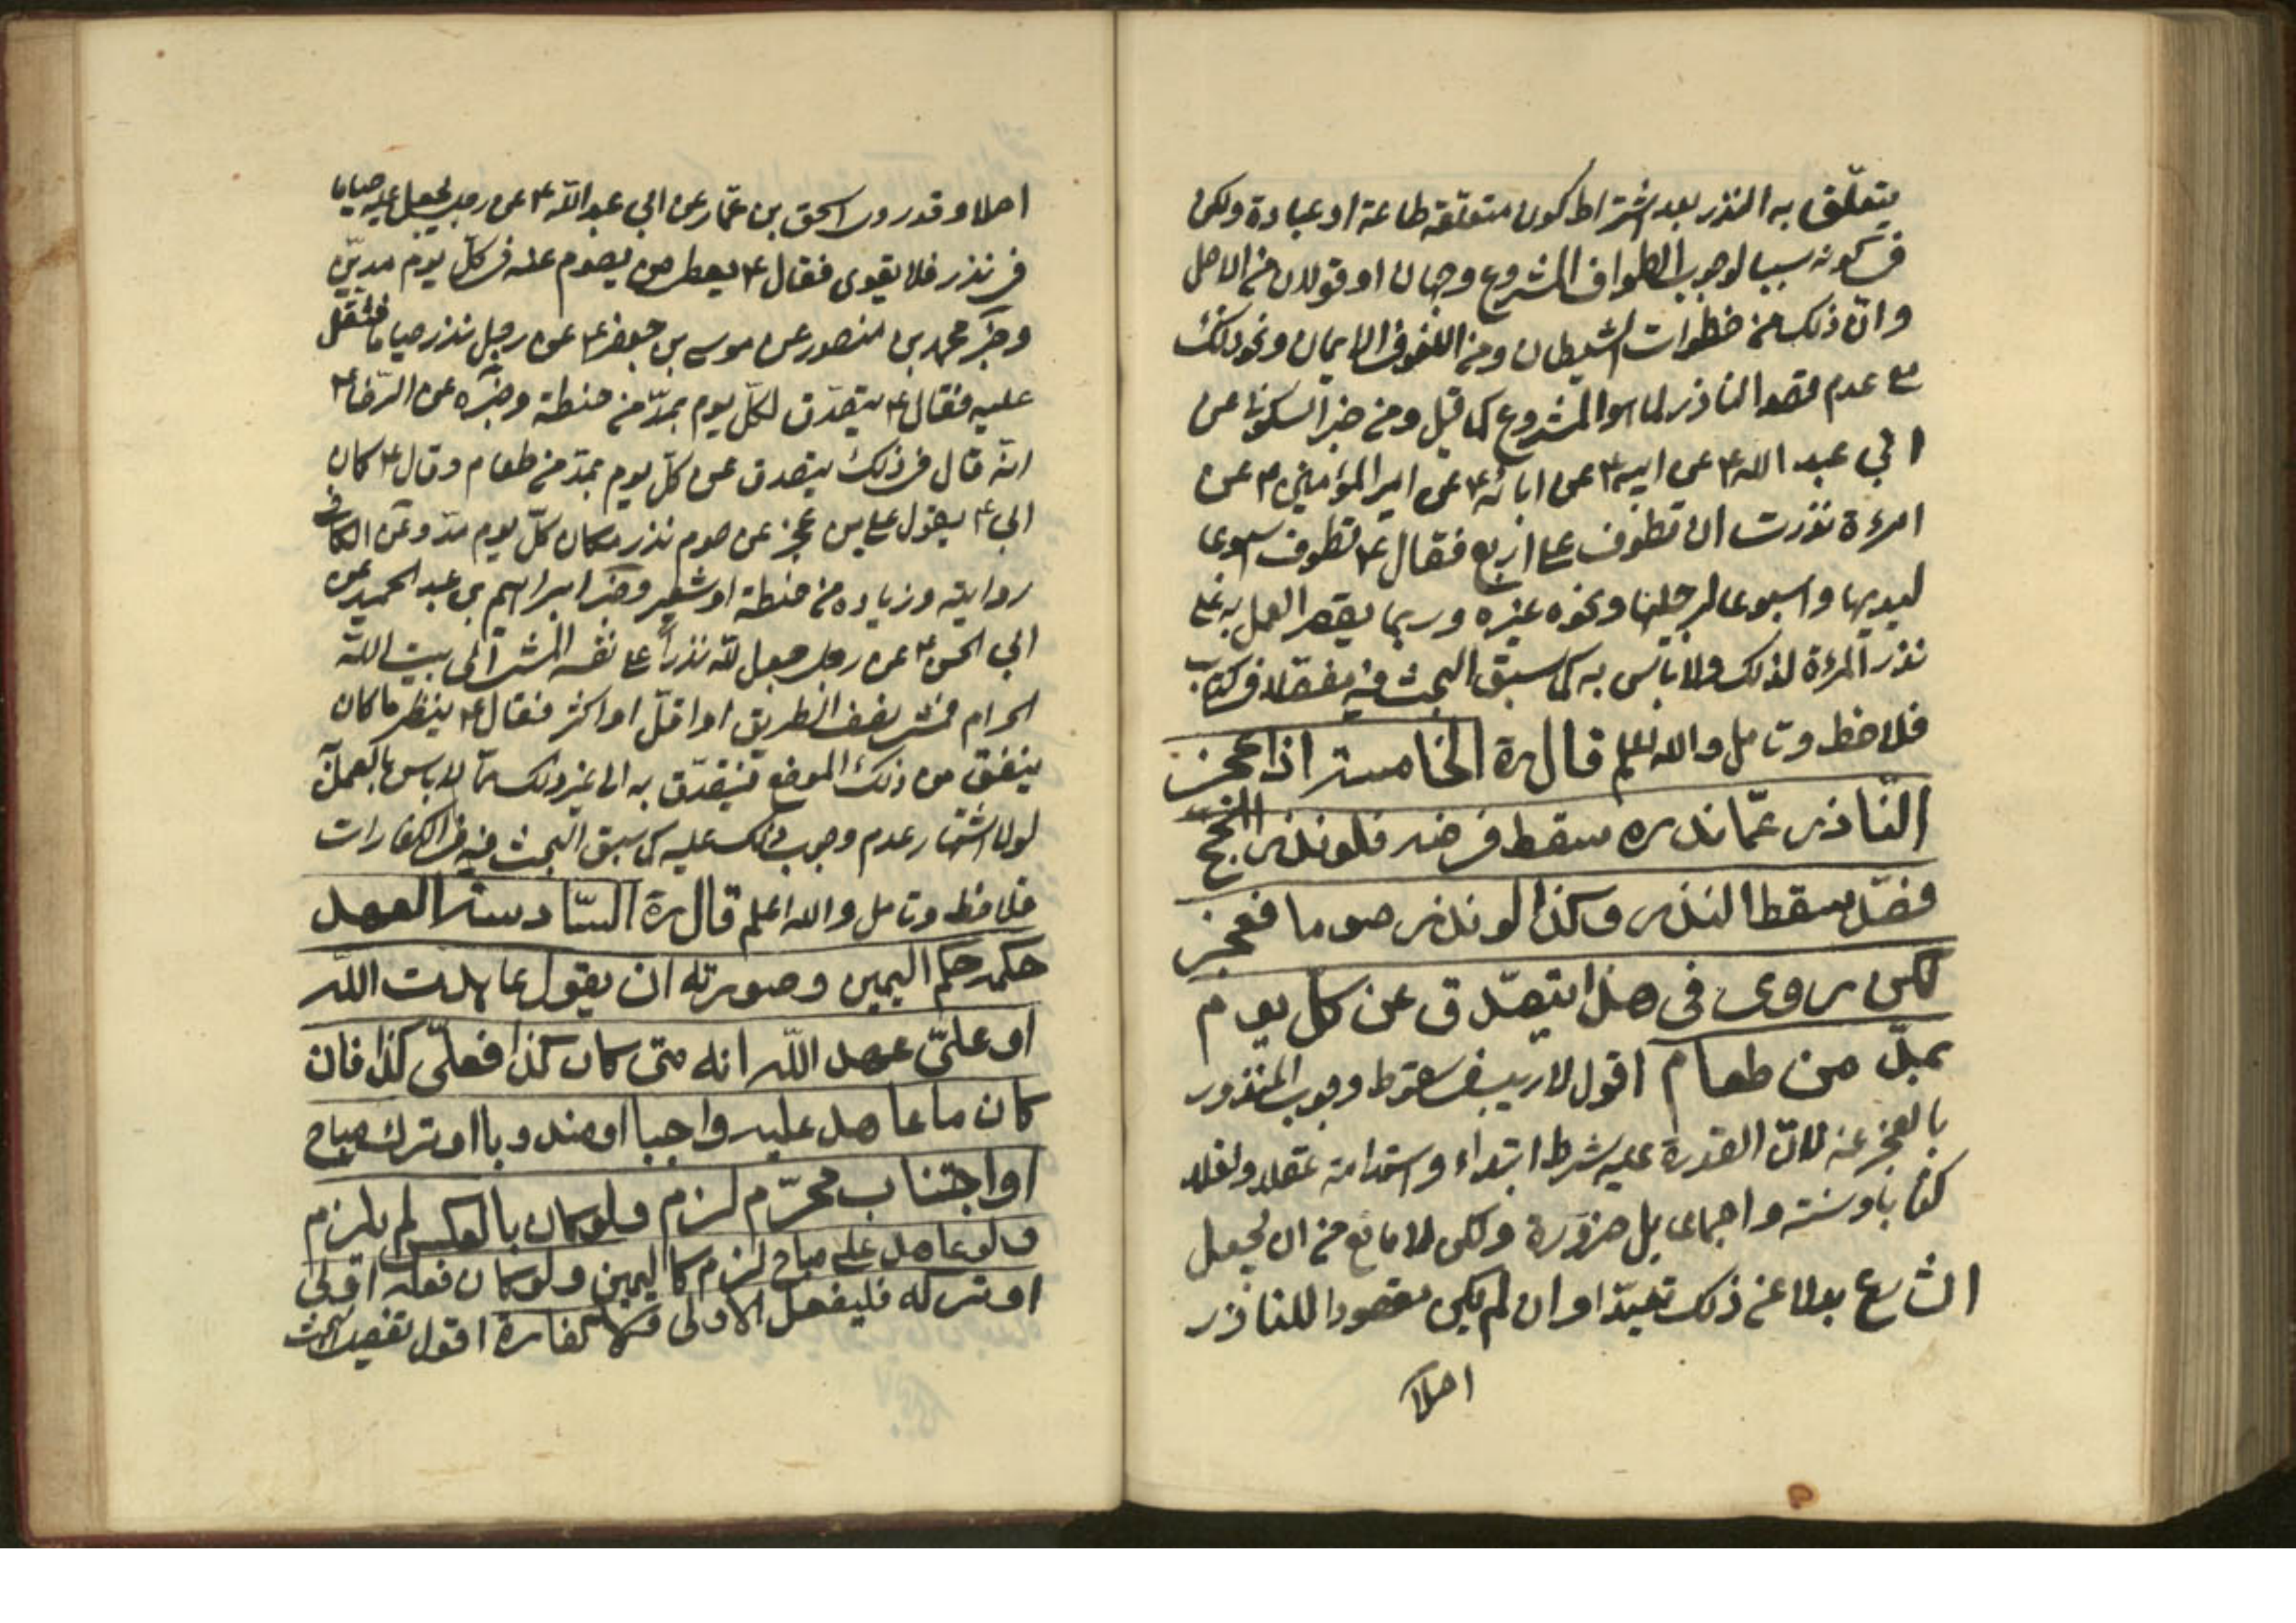 يتعلّق به النذر بعد اشتراط كون متعلّقه طاعة او عبادة ولكن
في كونه سببا لوجوب الطواف المشروع وجهان او قولان من الاصل
وانّ ذلك من خطوات الشيطان ومن اللغو في الايمان ونحو ذلك
مع عدم قصد الناذر لما سوا المشروع كما قيل ومن خبر السكوني عن
ابي عبد الله ع عن ابيه ع عن ابائه ع عن امير المؤمنين ع عن
امرءة نذرت ان تطوف على اربع فقال ع تطوف اسبوعا
ليديها واسبوعا لرجليها ونحوه غيره وربما يقصر العمل به على
نذر المرءة لذلك ولا باس به كما سبق البحث فيه مفصّلا في كتاب
فلاحظ وتامل والله يعلم قال ره الخامسة اذا عجز
النّاذر عمّا نذره سقط فرضه فلو نذر الحج
فصّد سقط النذر وكذا لو نذر صوما فعجز
لكن روى في هذا يتصّدق عن كل يوم
بمدّ من طعام اقول لا ريب في سقوط وجوب المنذور
بالعجز عنه لانّ القدرة عليه شرط ابتداء واستدامة عقلا ونقلا
كتابا وسنة واجماعا بل ضرورة ولكن لا مانع من ان يجعل
الشارع بدلا عن ذلك تعبدّا وان لم يكن مقصودا للناذر
اصلا
اصلا وقد روى اسحق بن عمّار عن ابي عبد الله ع عن رجل يجعل عليه صياما
في نذر فلا يقوى فقال ع يعطى من يصوم عنه في كلّ يوم مدين
وخبر محمد بن منصور عن موسى بن جعفر ع عن رجل نذر صياما فثقل
عليه فقال ع يتصدّق لكلّ يوم بمدّ من حنطة وخبره عن الرّضا ع
انّه قال في ذلك يتصدق عن كلّ يوم بمدّ من طعام وقال ع كان
ابي ع يقول على من عجز عن صوم نذر مكان كلّ يوم مدّ وعن الكافي
روايته وزياده من حنطة او شعير وخبر ابراهيم بن عبد الحميد عن
ابي الحسن ع عن رجل جعل لله نذرا على نفسه المشي الى بيت الله
الحرام فمشى نصف الطريق او اقلّ او اكثر فقال ع ينظر ما كان
ينفق من ذلك الموضع فيتصدّق به الى غير ذلك ممّا لا باس بالعمل به
لولا اشتهار عدم وجوب ذلك عليه كما سبق البحث فيه في الكفارات
فلاحظ وتامل والله اعلم قال ره السّادسة العهد
حكمه حكم اليمين وصورته ان يقول عاهدت اللّه
او علىّ عهد اللّه انه متى كان كذا فعلّى كذا فان
كان ما عاهد عليه واجبا او مندوبا او ترك مباح
او اجتناب محرّم لزم ولو كان بالعكس لم يلزم
ولو عاهد على مباح لزم كاليمين ولو كان فعله اولى
او تركه فليفعل الاولى ولا كفارة اقول تفصيل البحث